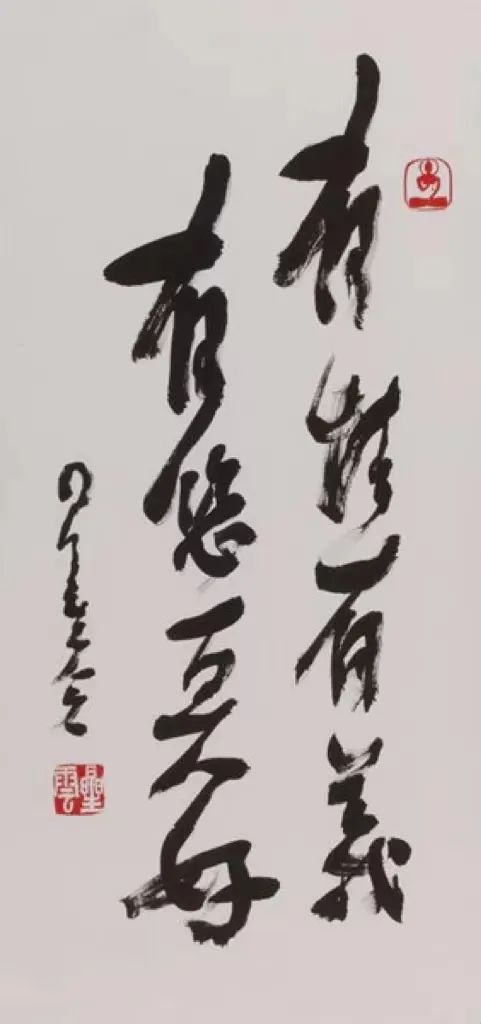 有情有義
有您真好
星雲